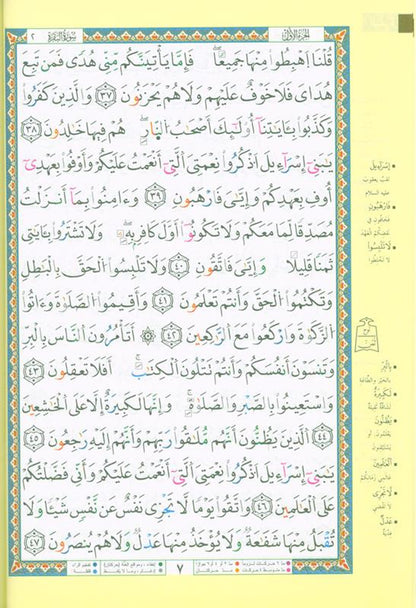 سُورَةُ الْبَقَرَةِ ٢
الجزء الأول
قُلْنَا اهْبِطُوا مِنْهَا جَمِيعًا فَإِمَّا يَأْتِيَنَّكُم مِّنِّى هُدًى فَمَن تَبِعَ
هُدَاىَ فَلَا خَوْفٌ عَلَيْهِمْ وَلَا هُمْ يَحْزَنُونَ ٣٧ وَالَّذِينَ كَفَرُوا
وَكَذَّبُوا بِـَٔايَٰتِنَا أُوْلَٰٓئِكَ أَصْحَٰبُ النَّارِ هُمْ فِيهَا خَٰلِدُونَ ٣٨
يَٰبَنِىٓ إِسْرَآءِيلَ اذْكُرُوا نِعْمَتِىَ الَّتِىٓ أَنْعَمْتُ عَلَيْكُمْ وَأَوْفُوا بِعَهْدِىٓ
أُوفِ بِعَهْدِكُمْ وَإِيَّٰىَ فَارْهَبُونِ ٣٩ وَءَامِنُوا بِمَآ أَنزَلْتُ
مُصَدِّقًا لِّمَا مَعَكُمْ وَلَا تَكُونُوٓا أَوَّلَ كَافِرٍ بِهِ وَلَا تَشْتَرُوا بِـَٔايَٰتِى
ثَمَنًا قَلِيلًا وَإِيَّٰىَ فَاتَّقُونِ ٤٠ وَلَا تَلْبِسُوا الْحَقَّ بِالْبَٰطِلِ
وَتَكْتُمُوا الْحَقَّ وَأَنتُمْ تَعْلَمُونَ ٤١ وَأَقِيمُوا الصَّلَوٰةَ وَءَاتُوا
الزَّكَوٰةَ وَارْكَعُوا مَعَ الرَّٰكِعِينَ ٤٢ أَتَأْمُرُونَ النَّاسَ بِالْبِرِّ
وَتَنسَوْنَ أَنفُسَكُمْ وَأَنتُمْ تَتْلُونَ الْكِتَٰبَ أَفَلَا تَعْقِلُونَ ٤٣
وَاسْتَعِينُوا بِالصَّبْرِ وَالصَّلَوٰةِ وَإِنَّهَا لَكَبِيرَةٌ إِلَّا عَلَى الْخَٰشِعِينَ
٤٤ الَّذِينَ يَظُنُّونَ أَنَّهُم مُّلَٰقُوا رَبِّهِمْ وَأَنَّهُمْ إِلَيْهِ رَٰجِعُونَ ٤٥
يَٰبَنِىٓ إِسْرَآءِيلَ اذْكُرُوا نِعْمَتِىَ الَّتِىٓ أَنْعَمْتُ عَلَيْكُمْ وَأَنِّى فَضَّلْتُكُمْ
عَلَى الْعَٰلَمِينَ ٤٦ وَاتَّقُوا يَوْمًا لَّا تَجْزِى نَفْسٌ عَن نَّفْسٍ شَيْـًٔا وَلَا
تُقْبَلُ مِنْهَا شَفَٰعَةٌ وَلَا يُؤْخَذُ مِنْهَا عَدْلٌ وَلَا هُمْ يُنصَرُونَ ٤٧
٧
إِسْرَآءِيلَ
لقب يعقوب
عليه السلام
فَارْهَبُونِ
فخافون في
نقضكم العهد
لَا تَلْبِسُوا
لا تخلطوا
بِالْبِرِّ
بالخير والطاعة
لَكَبِيرَةٌ
لشاقة ثقيلة
يَظُنُّونَ
الْعَٰلَمِينَ
عالمي زمانكم
لَا تَجْزِى
لا تقضي
عَدْلٌ
فدية